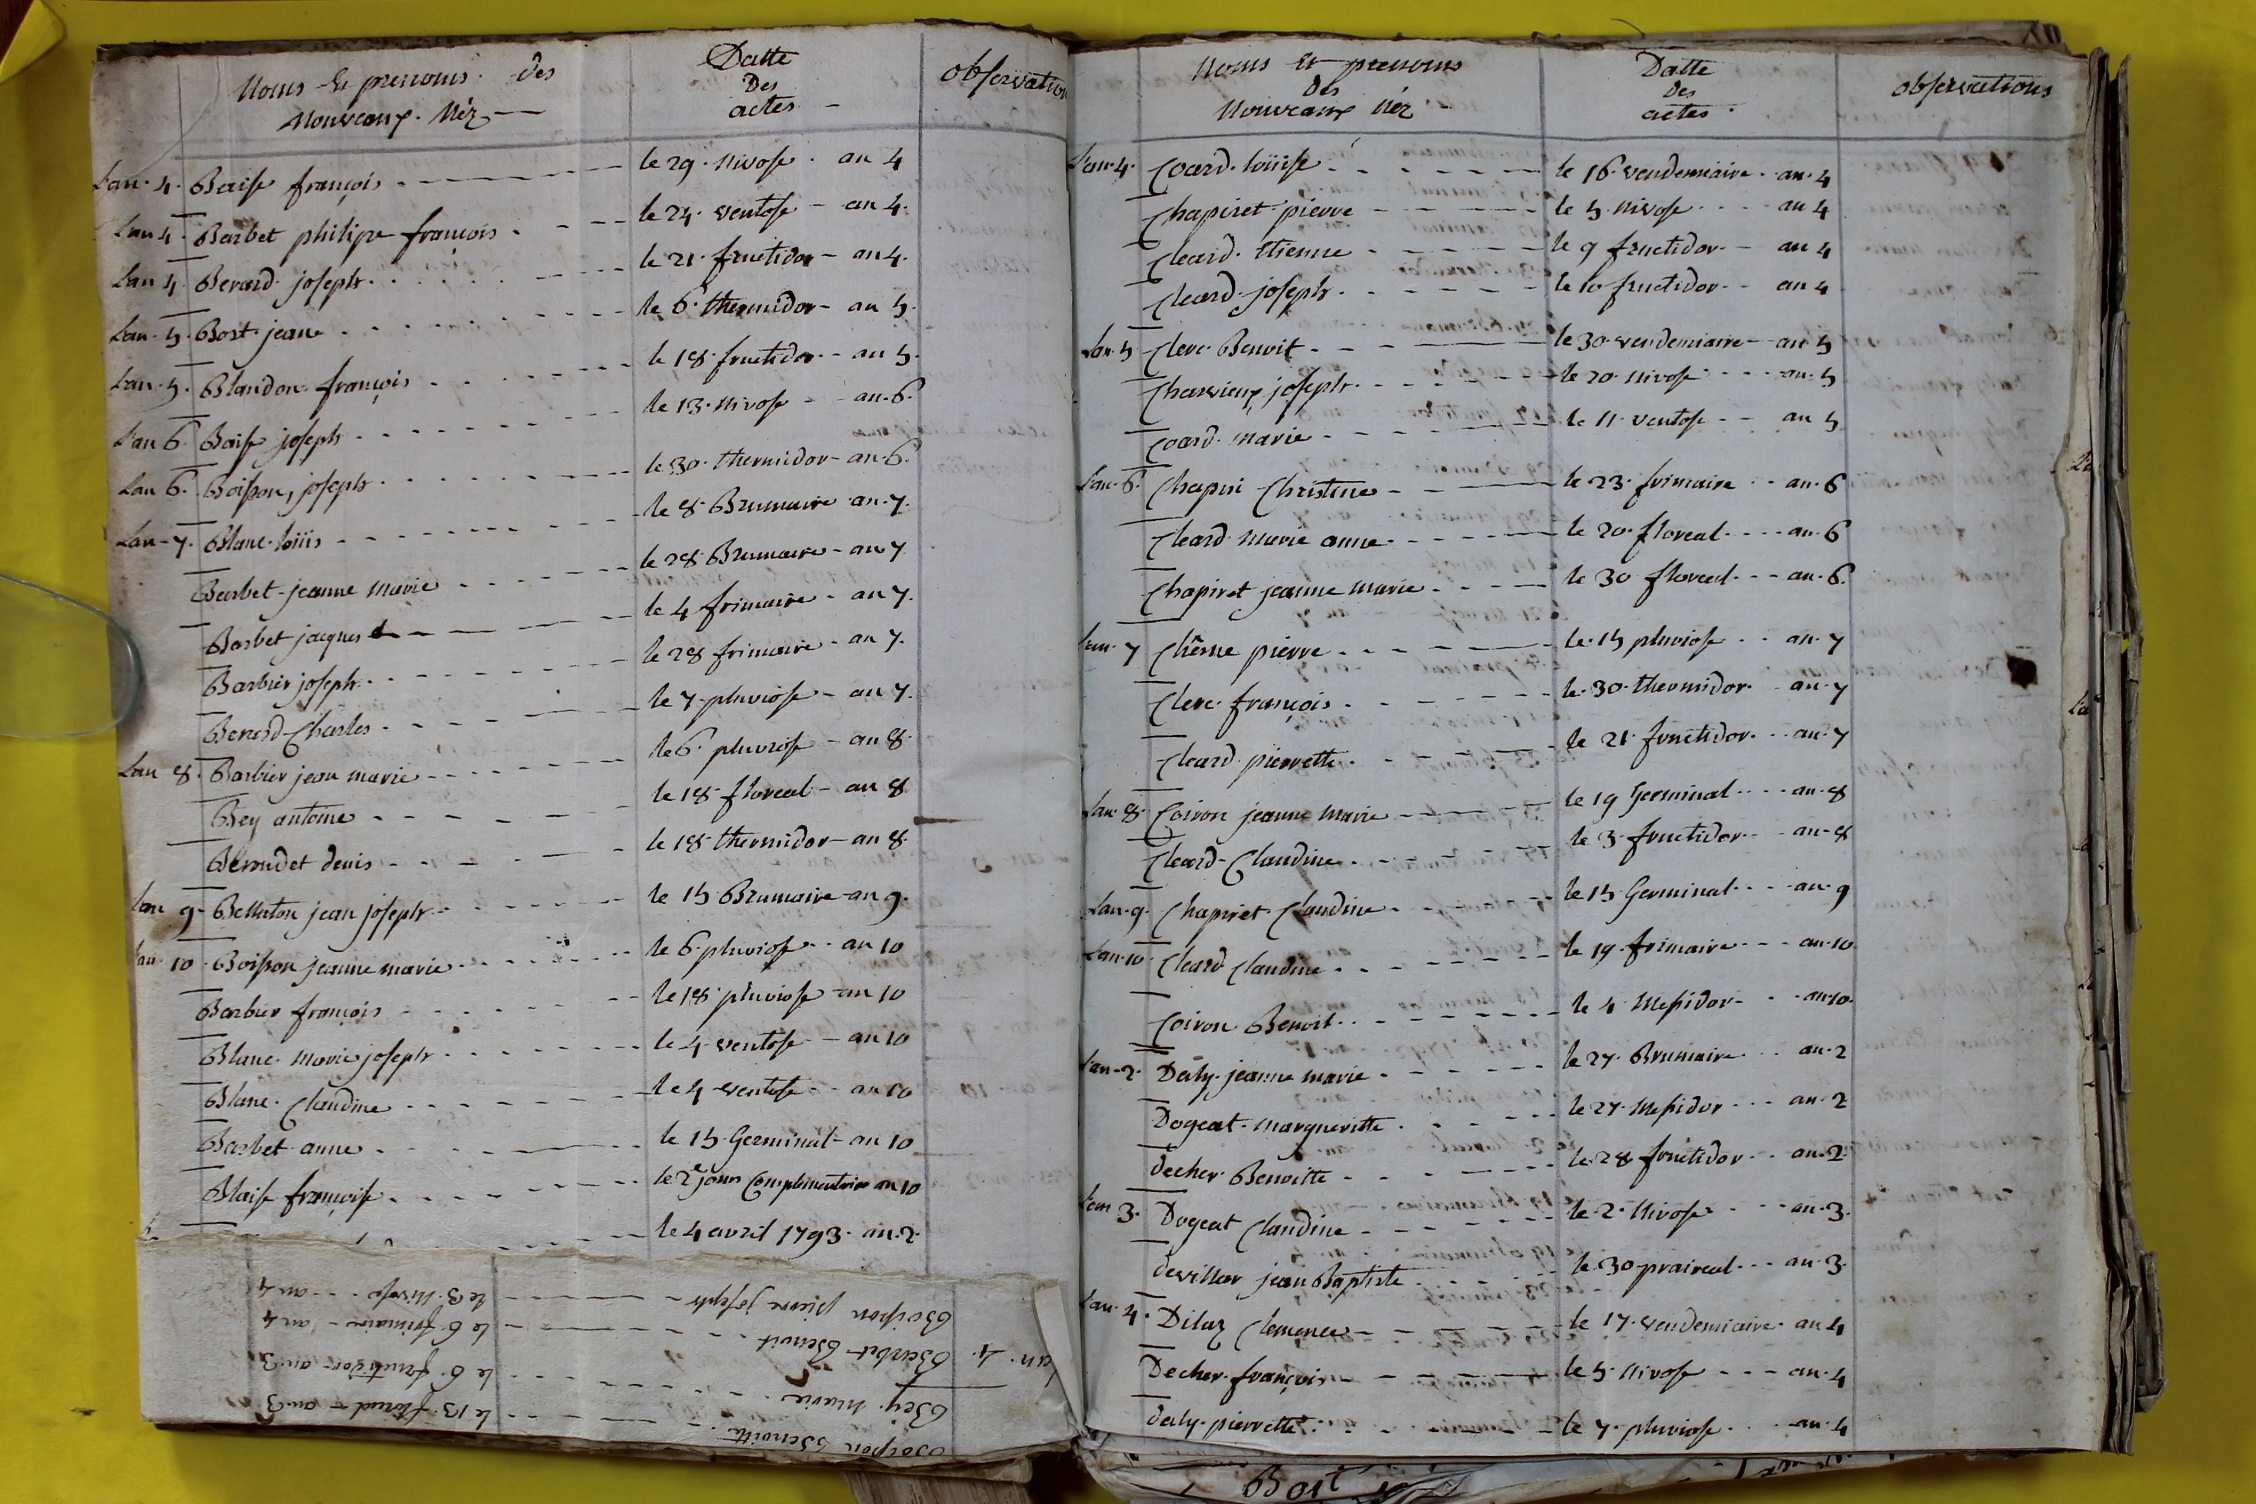 Noms Et prenoms des
Nouveaux Néz
Datte
Des
actes
observation
L'an 4. Baise françois le 29 Nivose an 4
L'an 4. Barbet philipe françois le 24 ventose an 4.
L'an 4. Berard joseph le 21 fructidor an 4.
L'an 5. Bost jean le 6 thermidor an 5.
L'an 5. Blandon françois le 18 fructidor an 5.
L'an 6. Baise joseph le 13 Nivose an 6.
L'an 6. Boisson, joseph le 30 thermidor an 6.
L'an 7. Blanc loüis le 8 Brumaire an 7.
Barbet jeanne marie le 28 Brumaire an 7
Barbet jacques le 4 frimaire an 7.
Barbier joseph le 28 frimaire an 7.
Berard Charles le 7 pluviose an 7.
L'an 8. Barbier jean marie le 6 pluviose an 8.
Bey antoine le 18 floreal an 8
denis le 18 thermidor an 8.
L'an 9 Bellaton jean joseph le 15 Brumaire an 9.
L'an 10 Boisson jeanne marie le 6 pluviose an 10
Barbier françois le 18 pluviose an 10
Blanc marie joseph le 4 ventose an 10
Blanc Claudine le 4 ventose an 10
Barbet anne le 15 Germinal an 10
Blaise françoise le 2e jour Complementaire an 10
le 4 avril 1793 an 2.
Boisson pierre joseph le 3 Nivose an 4
an. 4. Barbet Benoit le 6 frimaire an 4
Bey Marie le 6 fructidor an 3
Boisson Benoitte le 13 floreal an 3
Noms Et prenoms
des
Nouveaux Néz
Datte
Des
actes
observations
L'an 4. Coard loüise le 16 vendemiaire an 4
Chapiret pierre le 5 Nivose an 4
Cleard Etienne le 9 fructidor an 4
Cleard joseph le 10 fructidor an 4
L'an 5 Clerc Benoit le 30 vendemiaire an 5
Charvieux joseph le 20 Nivose an 5
Coard marie le 11 ventose an 5
L'an 6. Chapiri Christine le 23 frimaire an 6
Cleard marie anne le 20 floreal an 6
Chapiret jeanne marie le 30 floreal an 6.
L'an 7 Chêrne pierre le 15 pluviose an 7
Clerc françois le 30 thermidor an 7
Cleard pierrette le 21 fructidor an 7
L'an 8. Coiron jeanne marie le 19 Germinal an 8
Cleard Claudine le 3 fructidor an 8
L'an 9. Chapiret Claudine le 15 Germinal an 9
L'an 10 Cleard Claudine le 19 frimaire an 10
Coiron Benoit le 4 Messidor an 10.
L'an 2. Daly jeanne marie le 27 Brumaire an 2
Dogeat margueritte le 27 Messidor an 2
decher Benoitte le 28 fructidor an 2
L'an 3. Dogeat Claudine le 2 Nivose an 3.
devillar jean Baptiste le 30 praireal an 3.
L'an 4. Dilaz Clemence le 17 vendemiaire an 4
Decher françois le 5 Nivose an 4
daly pierrette le 7 pluviose an 4